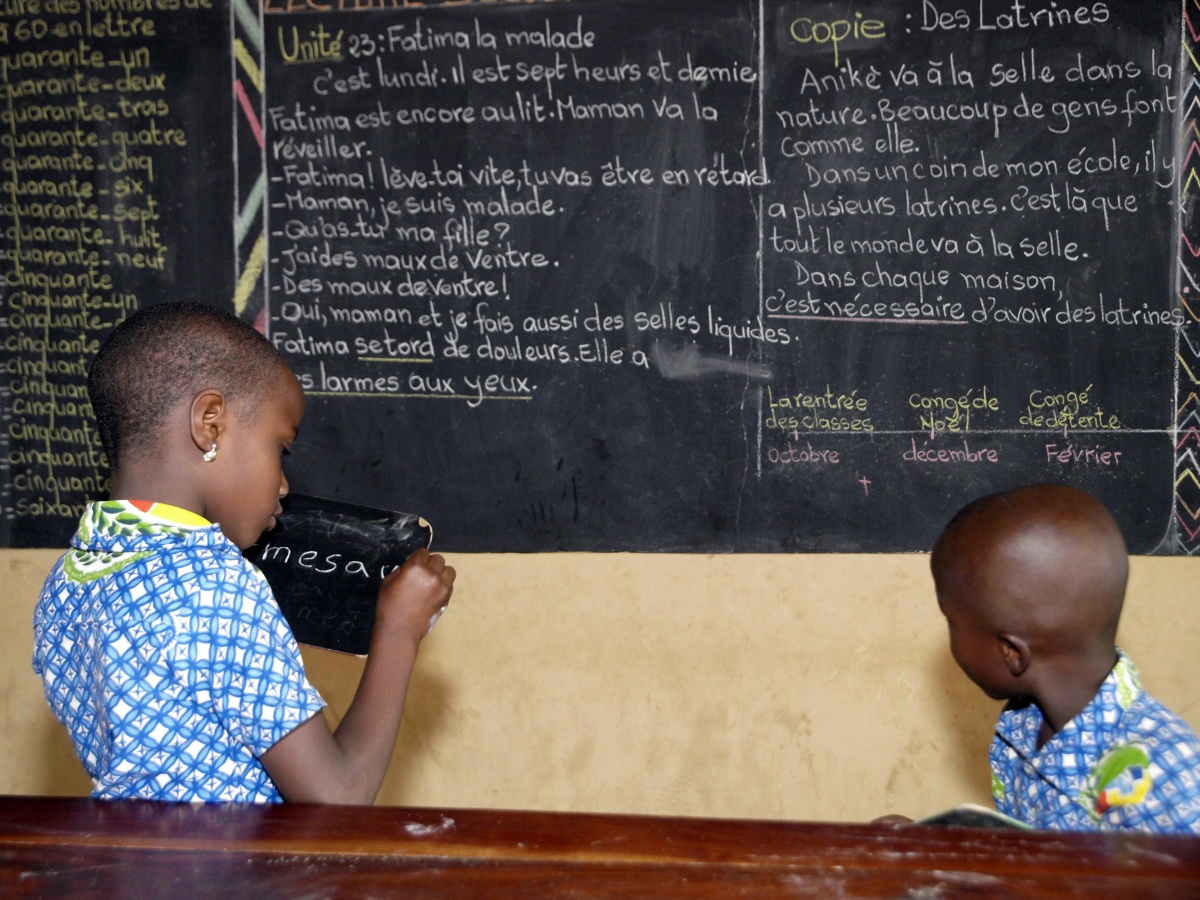 ture des nombres de
à 60 en lettre
quarante-un
quarante-deux
quarante-tras
quarante-quatre
quarante-cinq
quarante-six
quarante-sept
quarante-huit
quarante-neuf
cinquante
cinquante-un
cinquante-d
cinquante
cinquante
cinquan
cinquant
cinquant
cinquante
cinquante
Soixan
Unité 23: Fatima la malade
c'est lundi. il est sept heurs et demie
Fatima est encore au lit. Maman va la
réveiller.
-Fatima! lève-toi vite, tu vas être en rétard.
-Maman, je suis malade.
-Qu'as-tu ma fille?
-J'ai des maux de ventre.
-Des maux de ventre!
-Oui, maman et je fais aussi des selles liquides.
Fatima se tord de douleurs. Elle a
s larmes aux yeux.
Copie : Des Latrines
Anikè va à la selle dans la
nature. Beaucoup de gens font
comme elle.
Dans un coin de mon école, il y
a plusieurs latrines. C'est là que
tout le monde va à la selle.
Dans chaque maison,
c'est nécessaire d'avoir des latrines.
La rentrée des classes
congé de Noël
Congé de détente
octobre
décembre
Février
mesau